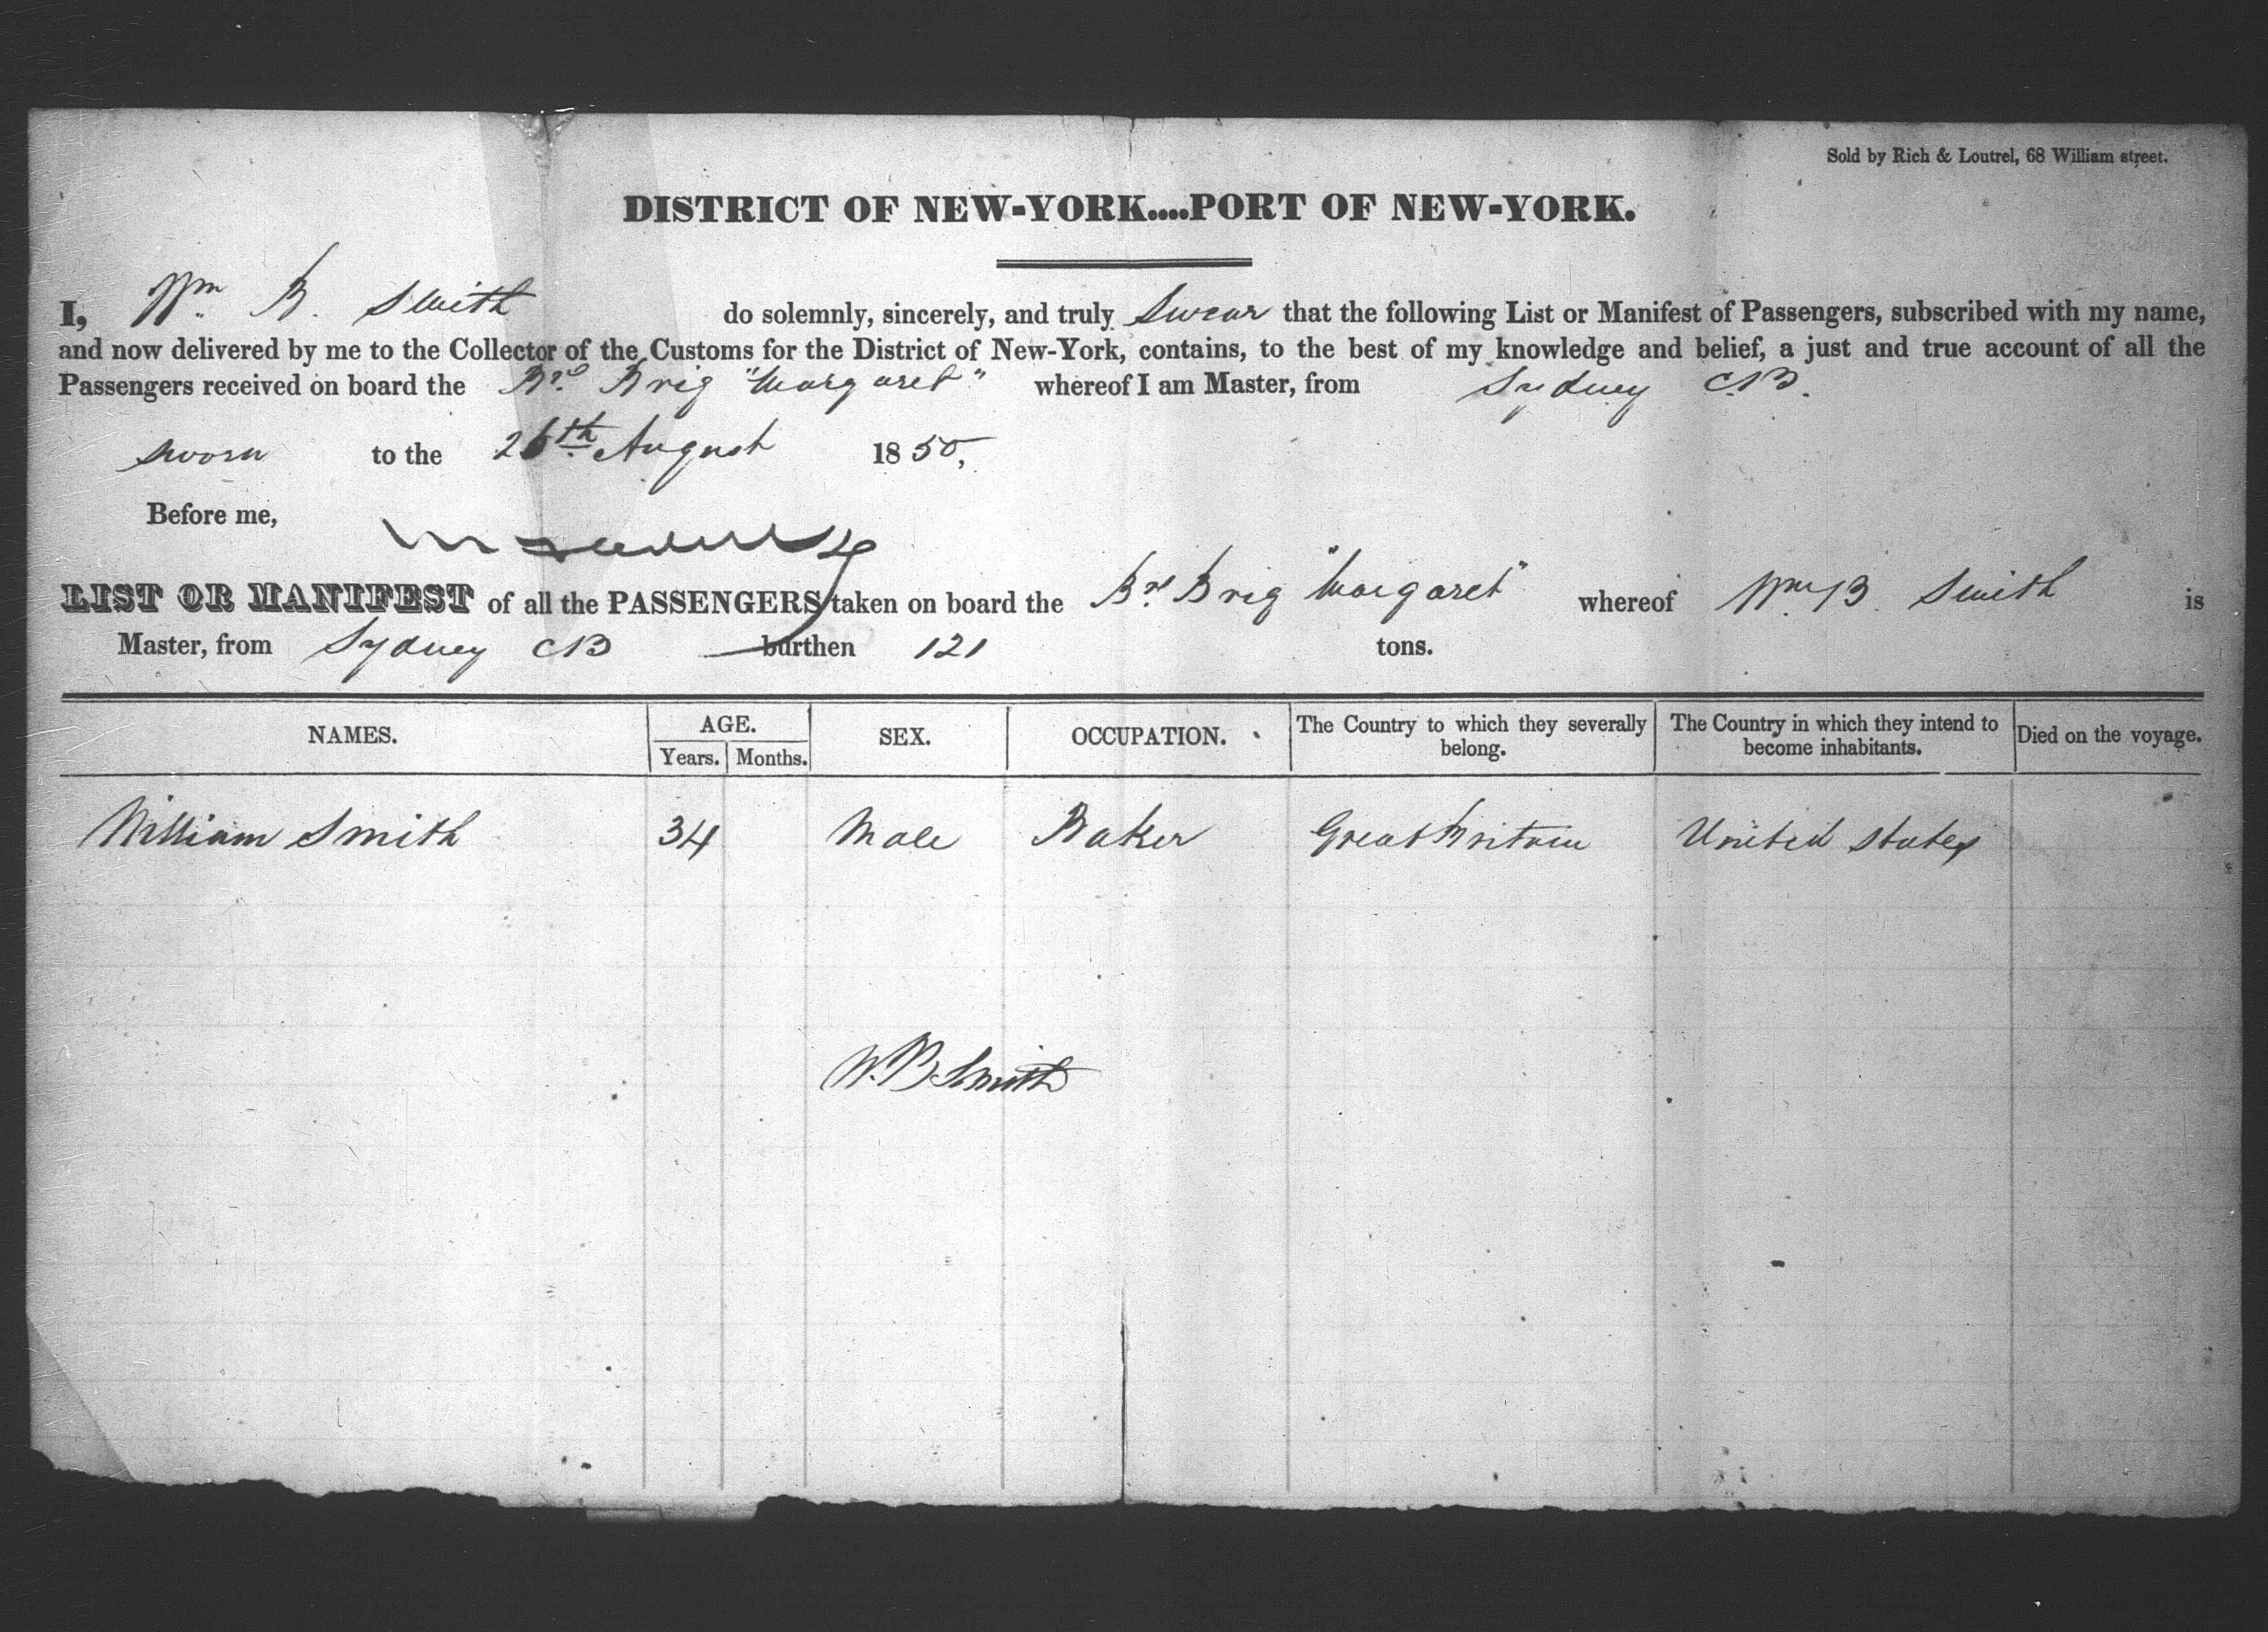 Sold by Rich & Loutrel, 68 William street.
DISTRICT OF NEW-YORK....PORT OF NEW-YORK.
I, Wm B. Smith do solemnly, sincerely, and truly Swear that the following List or Manifest of Passengers, subscribed with my name,
and now delivered by me to the Collector of the Customs for the District of New-York, contains, to the best of my knowledge and belief, a just and true account of all the
Passengers received on board the Br. Brig "Margaret" whereof I am Master, from Sydney C.B.
sworn to the 26th August 1850,
Before me,
LIST OR MANIFEST of all the PASSENGERS taken on board the Br. Brig "Margaret" whereof Wm B. Smith is
Master, from Sydney CB burthen 121 tons.
NAMES. AGE. Years. Months. SEX. OCCUPATION. The Country to which they severally belong. The Country in which they intend to become inhabitants. Died on the voyage.
William Smith 34 Male Baker Great Britain United States
W. B Smith